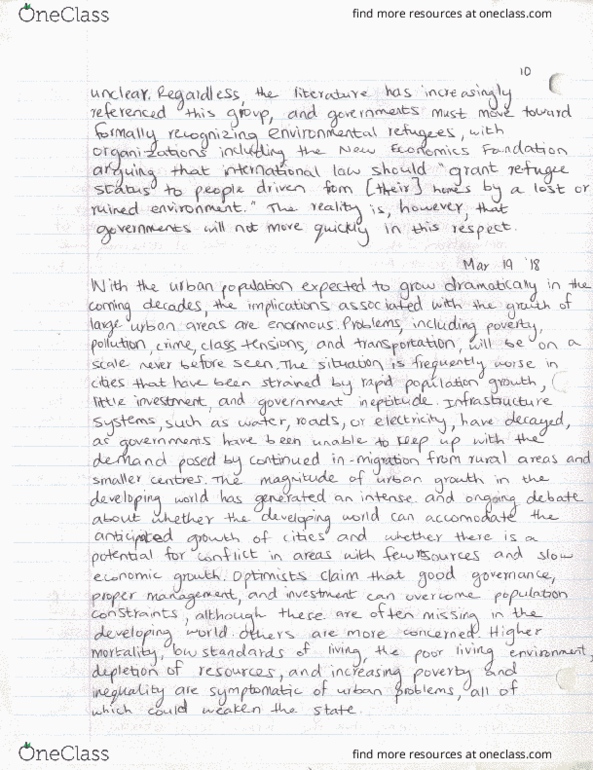 OneClass
find more resources at oneclass.com
10
unclear. Regardless, the literature has increasingly
referenced this group, and governments must move toward
formally recognizing environmental refugees, with
organizations including the New Economics Foundation
arguing that international law should "grant refugee
status to people driven from [their] homes by a lost or
ruined environment." The reality is, however, that
governments will not move quickly in this respect.
Mar 19 '18
With the urban population expected to grow dramatically in the
coming decades, the implications associated with the growth of
large urban areas are enormous. Problems, including poverty,
pollution, crime, class tensions, and transportation, will be on a
scale never before seen. The situation is frequently worse in
cities that have been strained by rapid population growth,
little investment, and government ineptitude. Infrastructure
systems, such as water, roads, or electricity, have decayed,
as governments have been unable to keep up with the
demand posed by continued in-migration from rural areas and
smaller centres. The magnitude of urban growth in the
developing world has generated an intense and ongoing debate
about whether the developing world can accomodate the
anticipated growth of cities and whether there is a
potential for conflict in areas with few resources and slow
economic growth. Optimists claim that good governance,
proper management, and investment can overcome population
constraints, although these are often missing in the
developing world. Others are more concerned. Higher
mortality, low standards of living, the poor living environment,
depletion of resources, and increasing poverty and
inequality are symptomatic of urban problems, all of
which could weaken the state.
OneClass
find more resources at oneclass.com